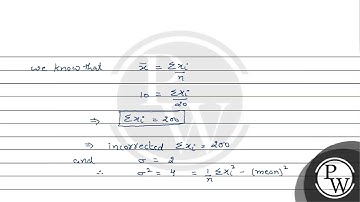 we know that x̄ = Σxi/n
10 = Σxi/20
⇒ Σxi = 200
⇒ incorrected Σxi = 200
and σ = 2
∴ σ² = 4 = 1/n Σxi² - (mean)²
PW
PW